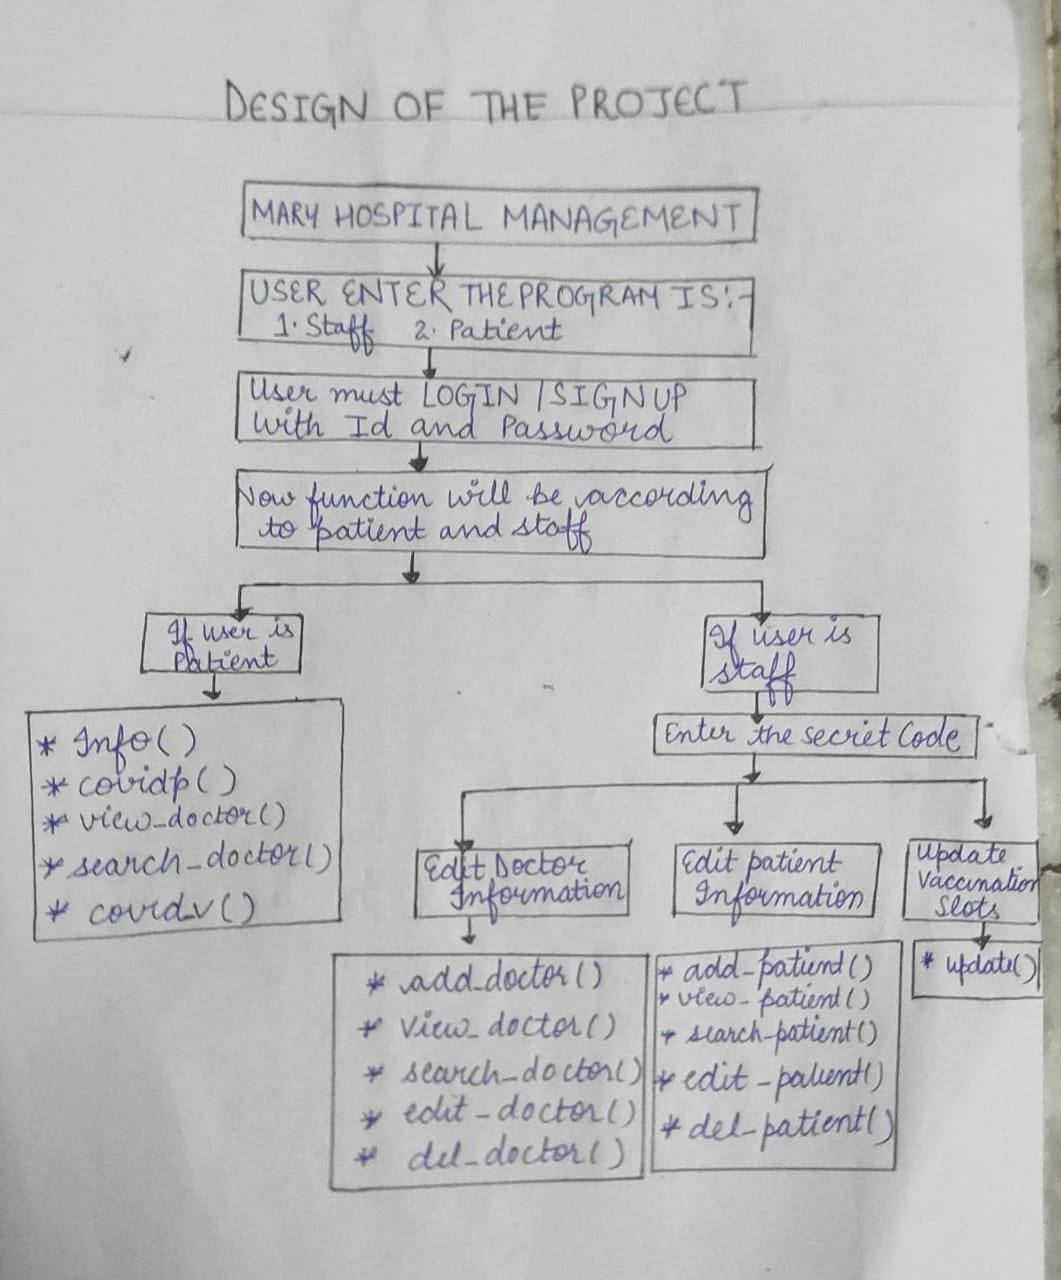 DESIGN OF THE PROJECT
MARY HOSPITAL MANAGEMENT
USER ENTER THE PROGRAM IS:-
1. Staff 2. Patient
User must LOGIN / SIGN UP
with Id and Password
Now function will be according
to patient and staff
If user is
Patient
* Info()
* covidp()
* view_doctor()
* search_doctor()
* covid_v()
If user is
staff
Enter the secret Code
Edit Doctor
Information
* add_doctor()
* view_doctor()
* search_doctor()
* edit_doctor()
* del_doctor()
Edit patient
Information
* add_patient()
* view_patient()
* search_patient()
* edit_patient()
* del_patient()
Update
Vaccination
Slots
* update()